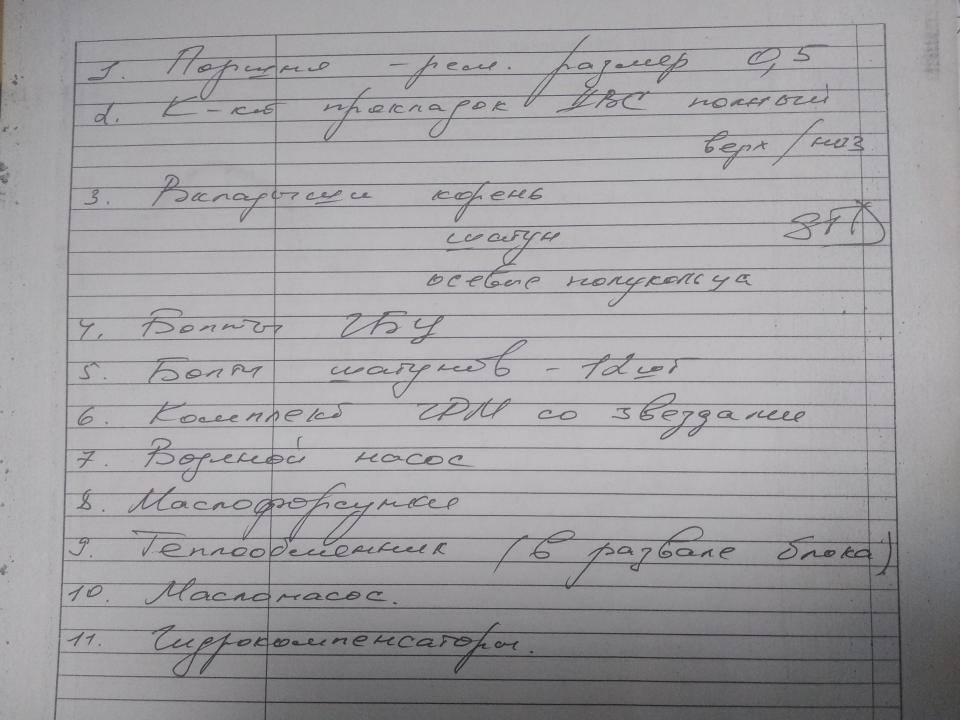 1. Поршня - рем. размер 0,5
2. К-кт прокладок ДВС полный
верх/низ
3. Вкладыши корень
шатун
осевые полукольца
4. Болты ГБЦ
5. Болты шатунов - 12шт
6. Комплект ГРМ со звездами
7. Водяной насос
8. Маслофорсунки
9. Теплообменник (в развале блока)
10. Маслонасос.
11. Гидрокомпенсаторы.